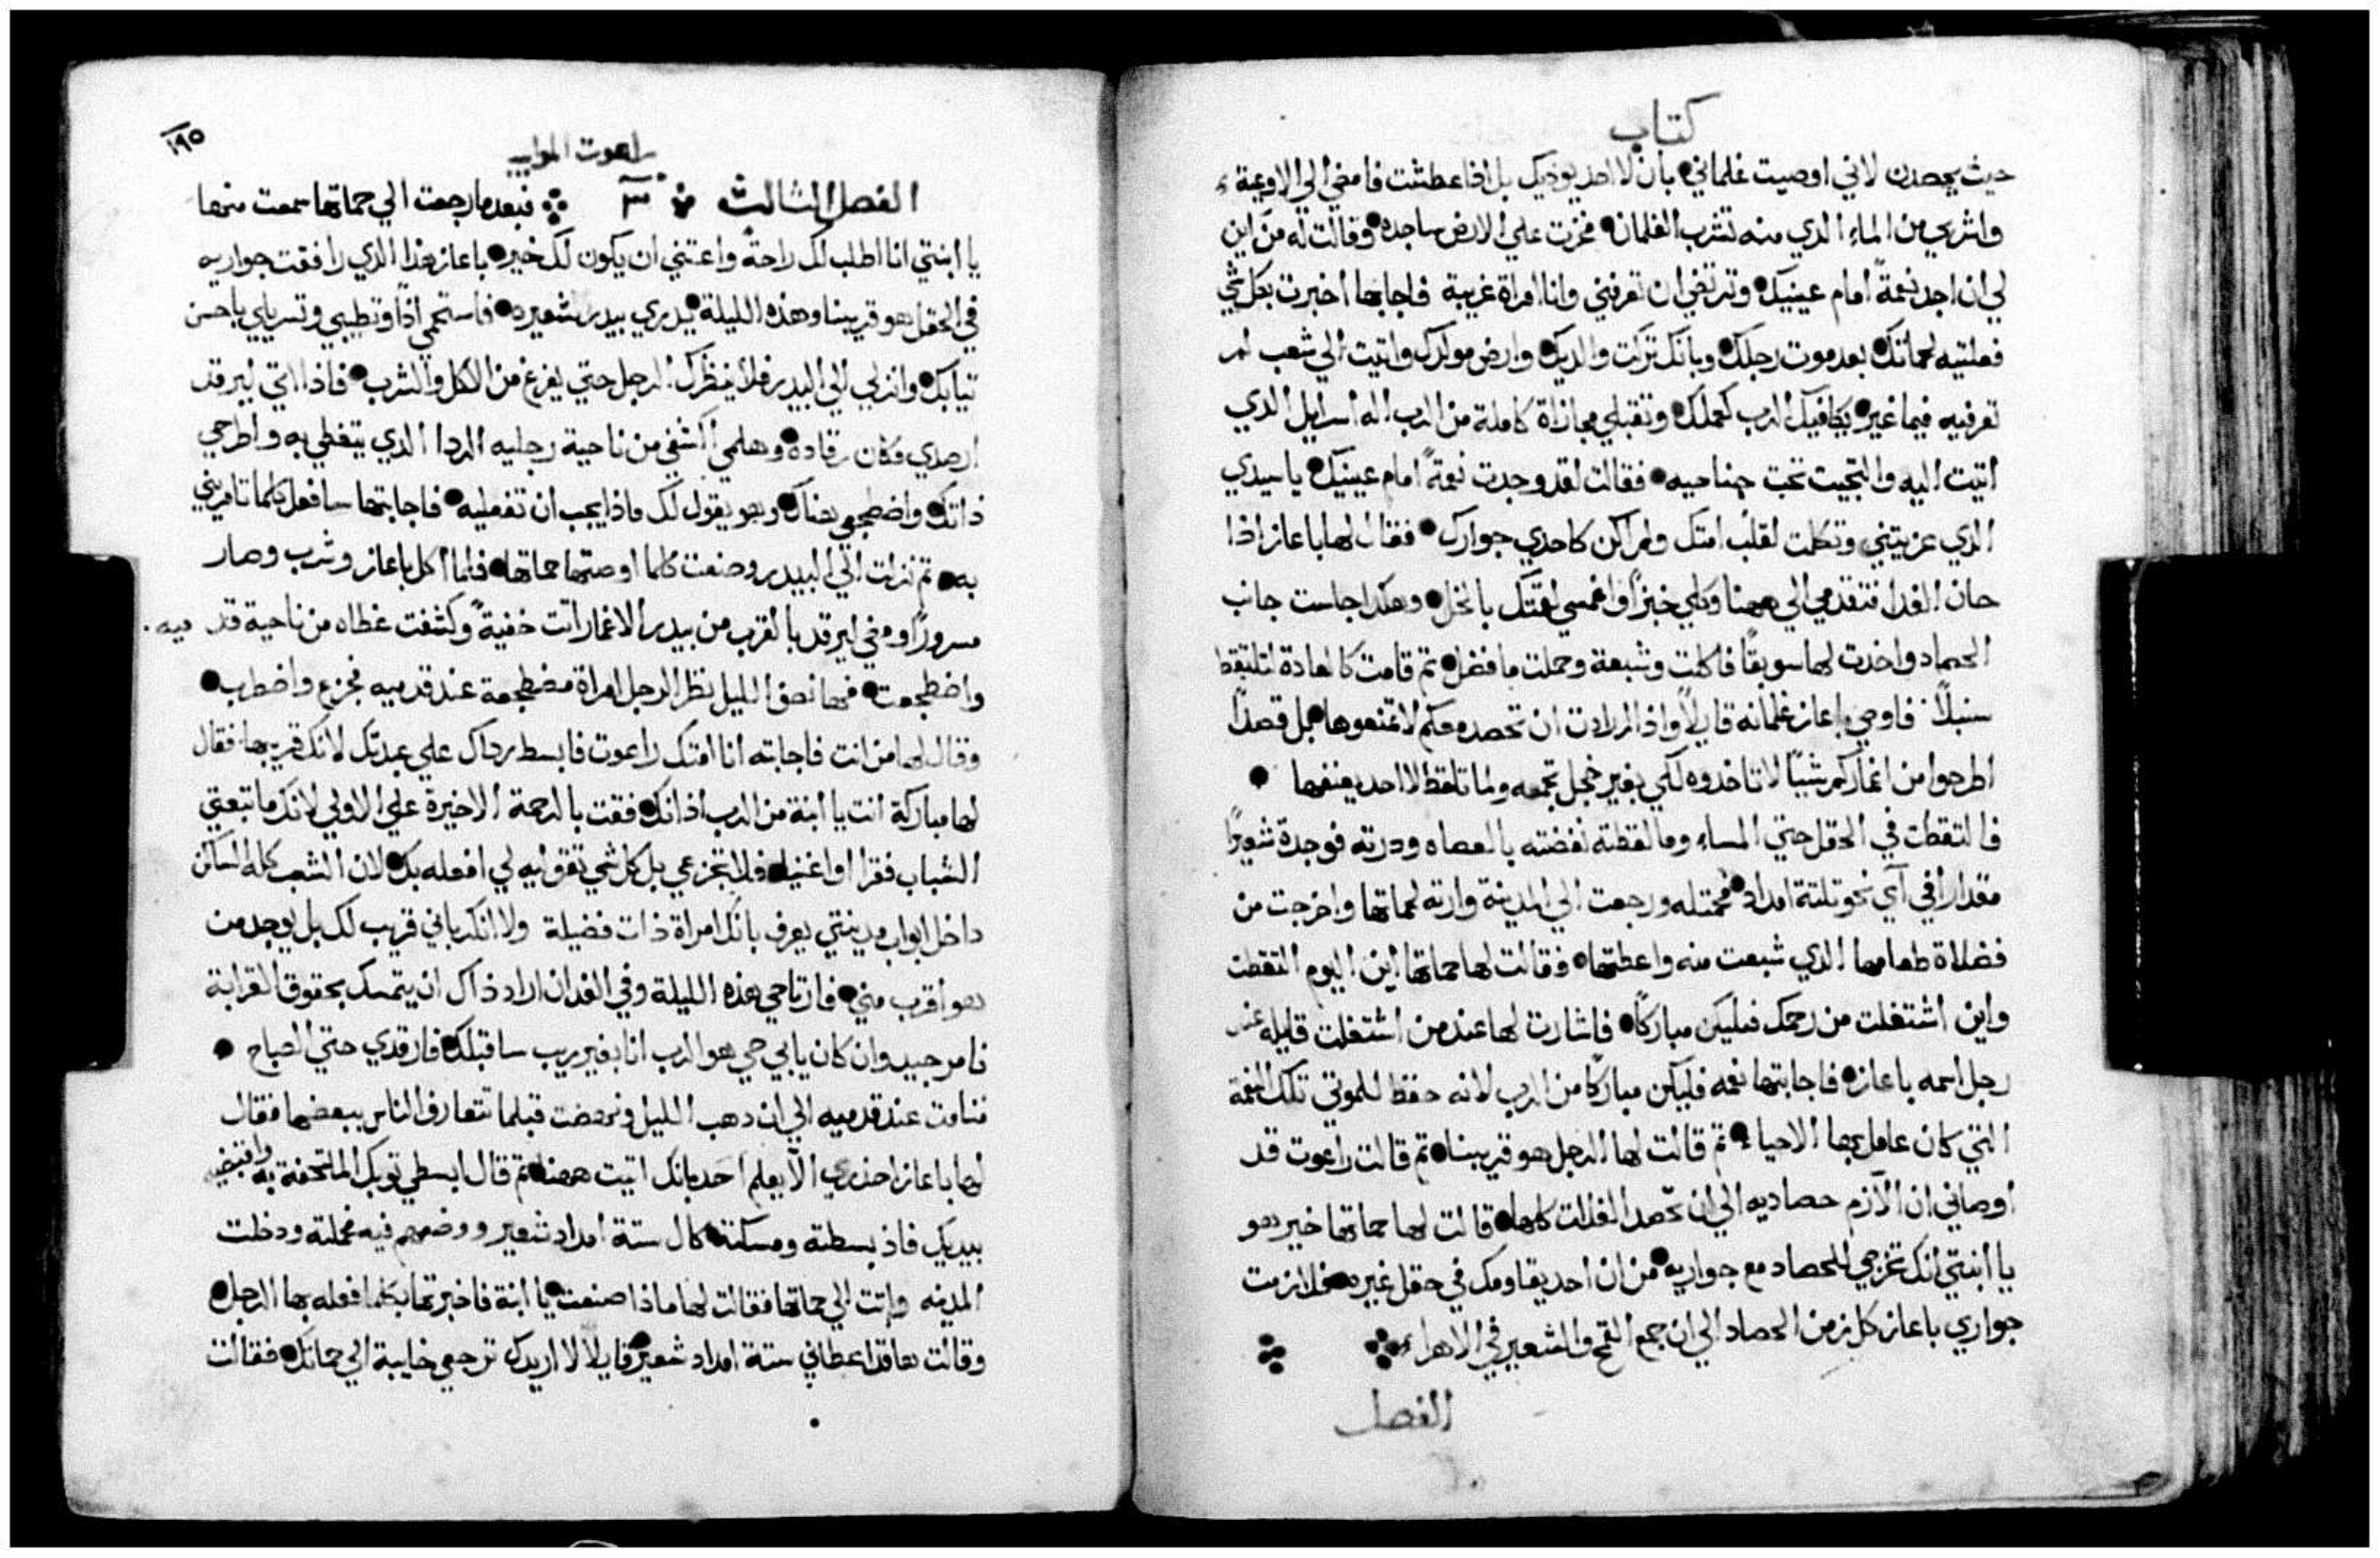 كتاب
حيث يحصدن لاني اوصيت غلماني بان لا احد يوذيك بل اذا عطشت فامضي الي الاوعية
واشربي من الماء الذي منه تشرب الغلمان فخرت علي الارض ساجده وقالت له من اين
لي ان اجد نعمةً امام عينيك وترتضي ان تعرفني وانا امراة غريبة فاجابها اخبرت بكل شي
فعلتيه لحماتك بعد موت رجلك وبانك تركت والديك وارض مولدك واتيت الي شعب لم
تعرفيه فيما غبر يكافيك الرب كعملك وتقبلي مجازاة كاملة من الرب اله اسرايل الذي
اتيت اليه والتجيت تحت جناحيه فقالت لقد وجدت نعمةً امام عينيك يا سيدي
الذي عزيتني وتكلمت لقلب امتك ولم اكن كاحدي جوارك فقال لها باعاز اذا
حان الغدا فتقدمي الي ههنا وكلي خبزًا واغمسي لقمتك بالخل وهكدا جلست جانب
الحصاد واخدت لها سويقًا فاكلت وشبعة وحملت ما فضل تم قامت كالعادة لتلتقط
سنبلاً فاوصي باعاز غلمانه قايلاً واذا ارادت ان تحصد معكم لا تمنعوها بل قصدًا
اطرحوا من اغماركم شيًا لا تاخدوه لكي بغير خجل تجمعه ولما تلقط لا احد يعنفها
فالتقطت في الحقل حتي المساء وما لقطته نفضته بالعصاه ودرته فوجدة شعيرًا
مقدار افي اي نحو تلتة امداد فحملته ورجعت الي المدينة وارته لحماتها واخرجت من
فضلاة طعامها الذي شبعت منه واعطتها فقالت لها حماتها اين اليوم التقطت
واين اشتغلت من رحمك فليكن مباركًا فاشارت لها عند من اشتغلت قايله عند
رجل اسمه باعاز فاجابتها نعمه فليكن مباركًا من الرب لانه حفظ للموتي تلك النعمة
التي كان عامل بها الاحياء تم قالت لها الرجل هو قريبنا تم قالت راعوت قد
اوصاني ان الازم حصاديه الي ان تحصد الغلات كلها قالت لها حماتها خير هو
يا ابنتي انك تخرجي للحصاد مع جواريه من ان احد يقاومك في حقل غيره فلازمت
جواري باعاز كل زمن الحصاد الي ان جمع القمح والشعير في الاهراء
الفصل
١٩٥
راعوت الموابيه
الفصل الثالث ٣ فبعد ما رجعت الي حماتها سمعت منها
يا ابنتي انا اطلب لك راحةً واعتني ان يكون لك خير باعاز هذا الذي رافقت جواريه
في الحقل هو قريبنا وهذه الليلة يدري بيدر شعيره فاستحمي اذًا وتطيبي وتسربلي باحسن
تيابك وانزلي الي البيدر فلا ينظرك الرجل حتي يفرغ من الاكل والشرب فاذا اتي ليرقد
ارصدي مكان رقاده وهلمي اكشفي من ناحية رجليه الردا الذي يتغطي به واطرحي
ذاتك واضطجعي هناك وهو يقول لك ماذا يجب ان تفعليه فاجابتها سافعل كلما تامريني
به تم نزلت الي البيدر وصنعت كلما اوصتها حماتها فلما اكل باعاز وشرب وصار
مسرورًا ومضي ليرقد بالقرب من بيدر الاغمار اتت خفيةً وكشفت غطاه من ناحية قدميه
واضطجعت فمها نصف الليل نظر الرجل امراة مضطجعة عند قدميه فجزع واضطرب
وقال لها من انت فاجابته انا امتك راعوت فابسط رداك علي عبدتك لانك قريبها فقال
لها مباركة انت يا ابنة من الرب اذ انك فقت بالرحمة الاخيرة علي الاولي لانك ما تبعتي
الشباب فقرا او اغنيا فلا تجزعي بل كل شي تقوليه لي افعله بك لان الشعب كله الساكن
داخل ابواب مدينتي يعرف بانك امراة ذات فضيلة ولا انكر باني قريب لك بل يوجد من
هو اقرب مني فارتاحي هذه الليلة وفي الغد ان اراد ذاك ان يتمسك بحقوق القرابة
فامر جيد وان كان يابي حي هو الرب انا بغير ريب ساقبلك فارقدي حتي الصباح
فنامت عند قدميه الي ان دهب الليل ونهضت قبلما تتعارف الناس ببعضها فقال
لها باعاز احذري الا يعلم احد بانك اتيت ههنا تم قال ابسطي توبك الملتحفة به واقبضيه
بيديك فاذ بسطته ومسكته كال ستة امداد شعير ووضعهم فيه فحملته ودخلت
المدينه واتت الي حماتها فقالت لها ماذا صنعت يا ابنة فاخبرتها بكلما فعله بها الرجل
وقالت ها قد اعطاني ستة امداد شعير قايلا لا اريدك ترجعي خايبة الي حماتك فقالت